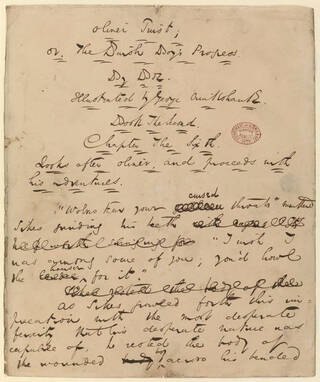 Oliver Twist;
or, The Parish Boy's Progress
By Boz.
Illustrated by George Cruikshank.
Book The
Chapter The
Looks after Oliver, and proceeds with
his adventures.
cursed
"Wolves tear your throats" muttered
Sikes grinding his teeth
"I wish I
was among some of you; you'd howl
the hoarser for it."
As Sikes growled forth this im-
precation with the most desperate
ferocity that his desperate nature was
capable of he rested the body of
the wounded boy across his bended